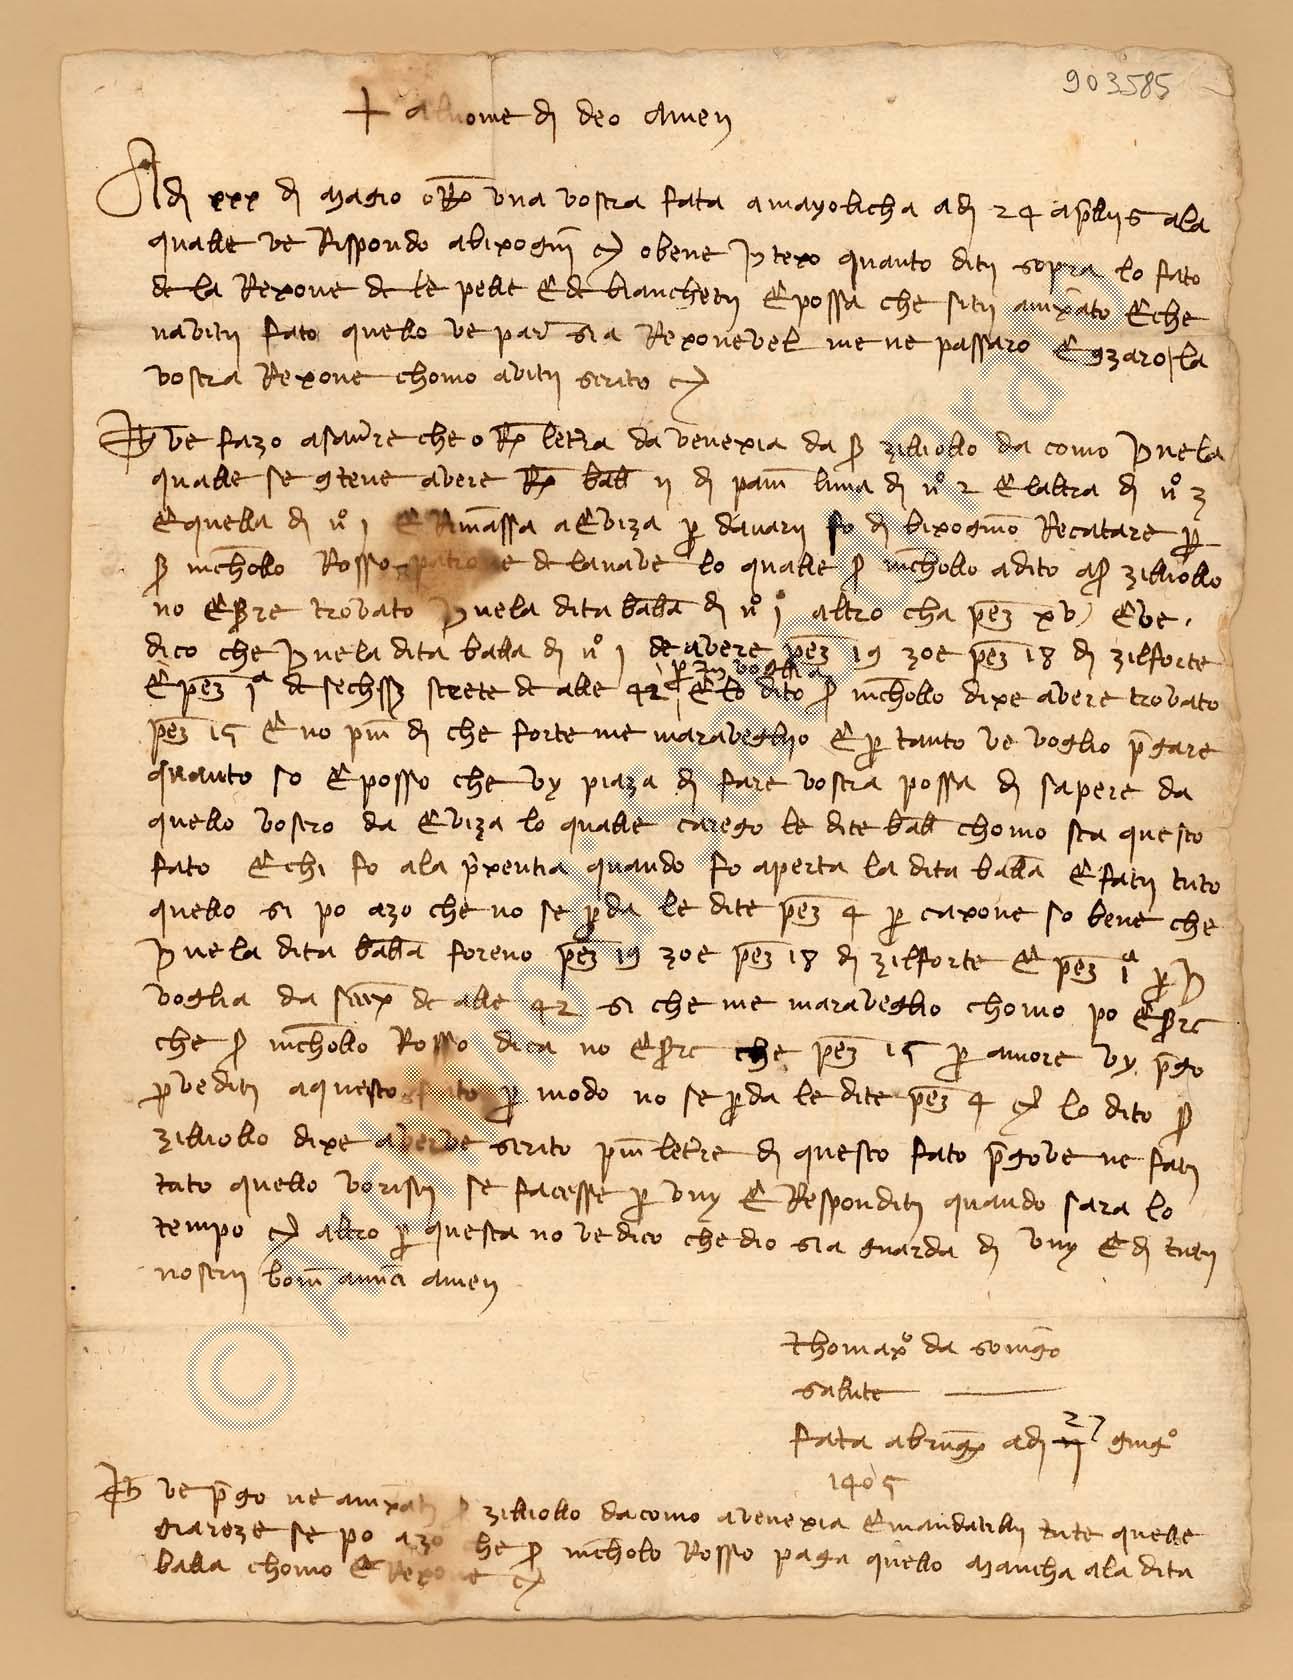 903585
+ al nome di deo amen
Adi xxx di magio o Rx una vostra fata a mayolicha adi 24 aprilis ala
qualle ve Rispondo a bixogni o bene intexo quanto diti sopra lo fato
de la Rexone de le pelle E de blancheti E possa che siti avixato E che
naviti fato quello ve par sia Rexonevel me ne passaro E la
vostra Rexone chomo aviti scrito
ve fazo asavere che o Rx letera da venexia da s zilliollo da como in ela
qualle se 9tene avere Rx ball ii di pani lun a di no 2 E laltra di no 3
E quella di no 1 E Rimassa a Eviza p davarii fo di bixogno Recatare p
s nichollo Rosso patrone de la nave lo qualle s nichollo a dito a s zilliollo
no Esere trovato in ela dita balla di no 1 altro cha pez xv E ve
dico che in ela dita balla di no 1 de avere pez 19 zoe pez 18 di zilforte
p in voglia
E pez 1a de sechss strete de alle 42 E lo dito s nichollo dixe avere trovato
pez 15 E no piu di che forte me maraveglio E p tanto ve voglio pgare
quanto so E posso che vy piaza di fare vostra possa di sapere da
quello vostro da Eviza lo qualle carego le dite ball chomo sta questo
fato E chi fo ala prexentia quando fo aperta la dita balla E fati tuto
quello si po azo che no se pda le dite pez 4 p caxone so bene che
in ela dita balla foreno pez 19 zoe pez 18 di zilforte E pez 1a p in
voglia da de alle 42 si che me maraveglio chomo po Esere
che s nichollo Rosso dica no Esere che pez 15 p amore vy pgo
pvediti a questo fato p modo no se pda le dite pez 4 lo dito s
zilliollo dixe averve scrito piu letere di questo fato pgove ne fati
tuto quello voristi se facesse p vuy E Responditi quando sara lo
tempo altro p questa no ve dico che dio sia guarda di vuy E di tuti
nostri boni amici amen
Thomaxo da
salute
fata a bruga adi 27 giugo
1405
ve pgo ne avixati s zilliollo da como a venexia E mandatilli tute quelle
giareze se po azo che s nicholo Rosso paga quello mancha ala dita
balla chomo E Rexone